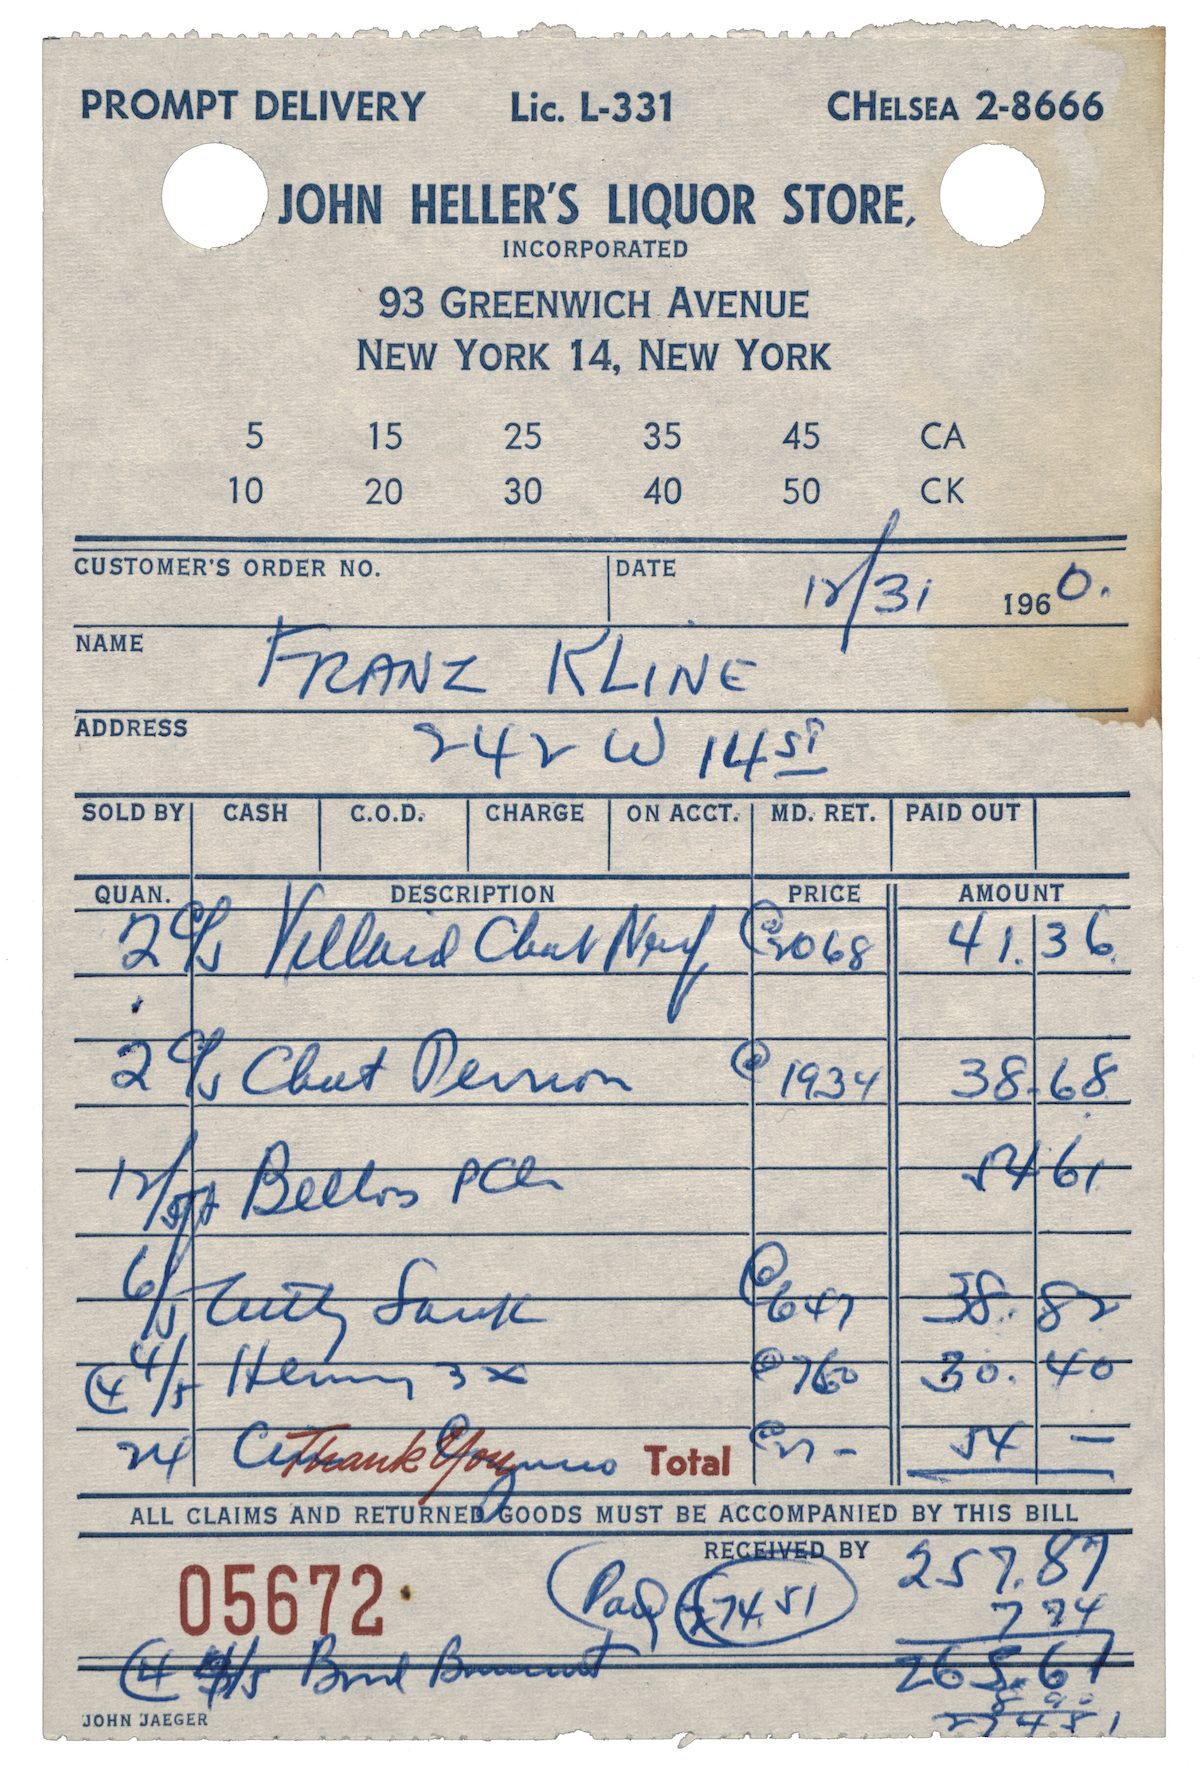 PROMPT DELIVERY Lic. L-331 CHELSEA 2-8666
JOHN HELLER'S LIQUOR STORE,
INCORPORATED
93 GREENWICH AVENUE
NEW YORK 14, NEW YORK
5 15 25 35 45 CA
10 20 30 40 50 CK
CUSTOMER'S ORDER NO. DATE 12/31 1960.
NAME FRANZ KLINE
ADDRESS 242 W 14 ST
SOLD BY CASH C.O.D. CHARGE ON ACCT. MD. RET. PAID OUT
QUAN. DESCRIPTION PRICE AMOUNT
2 c/s Chat Neuf @ 2068 41.36
2 c/s Chat @ 1934 38.68
12/5 54 61
6/5 Cutty Sark @ 647 38.82
4/5 Henny 3x @ 760 30.40
24 @ 27 - 54 —
Thank You Total
ALL CLAIMS AND RETURNED GOODS MUST BE ACCOMPANIED BY THIS BILL
RECEIVED BY 257.87
05672 Paid 274.51 7 74
265.61
274 51
JOHN JAEGER